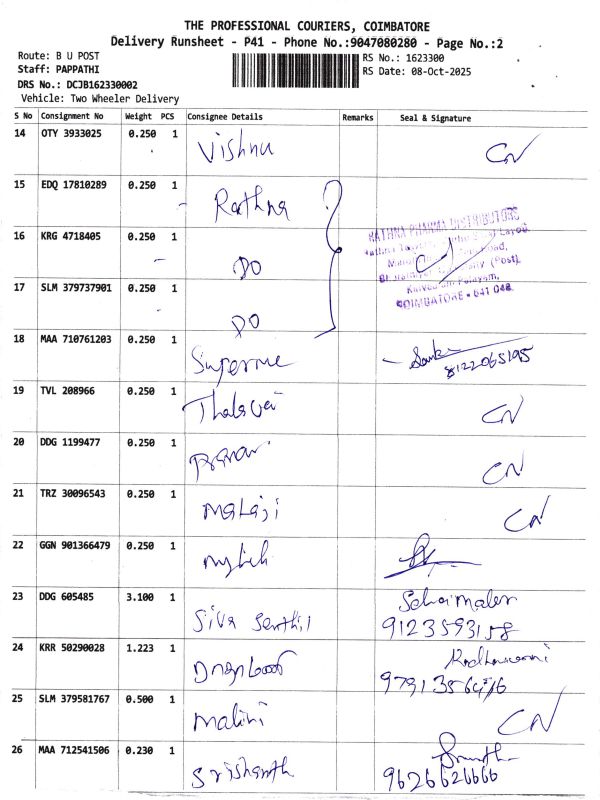 THE PROFESSIONAL COURIERS, COIMBATORE
Delivery Runsheet - P41 - Phone No.:9047080280 - Page No.:2
Route: B U POST
RS No.: 1623300
Staff: PAPPATHI
RS Date: 08-Oct-2025
DRS No.: DCJB162330002
Vehicle: Two Wheeler Delivery
S No Consignment No Weight PCS Consignee Details Remarks Seal & Signature
14 OTY 3933025 0.250 1 Vishnu CN
15 EDQ 17810289 0.250 1 Rathna
RATHNA PHARMA DISTRIBUTORS
16 KRG 4718405 0.250 1 DO
17 SLM 379737901 0.250 1 DO
COIMBATORE - 641 048
18 MAA 710761203 0.250 1 Supreme
8122065195
19 TVL 208966 0.250 1 CN
20 DDG 1199477 0.250 1 CN
21 TRZ 30096543 0.250 1 CN
22 GGN 901366479 0.250 1
23 DDG 605485 3.100 1 Siva Senthil
9123593158
24 KRR 50290028 1.223 1
25 SLM 379581767 0.500 1 Malini CN
26 MAA 712541506 0.230 1 Srishanth
9626626666